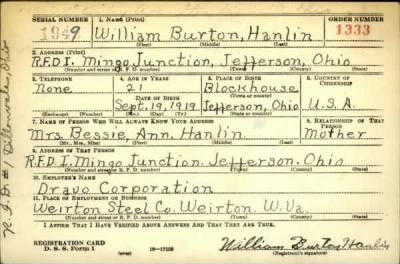 SERIAL NUMBER 1. NAME (Print) ORDER NUMBER
1949 William Burton, Hanlin 1333
(First) (Middle) (Last)
2. ADDRESS (Print)
R.F.D.1. Mingo Junction, Jefferson, Ohio
(Number and street or R. F. D. number) (Town) (County) (State)
3. TELEPHONE 4. AGE IN YEARS 5. PLACE OF BIRTH 6. COUNTRY OF CITIZENSHIP
None 21 Blockhouse
DATE OF BIRTH (Town or county)
Sept. 19, 1919 Jefferson, Ohio U.S.A.
7. NAME OF PERSON WHO WILL ALWAYS KNOW YOUR ADDRESS 8. RELATIONSHIP OF THAT PERSON
Mrs. Bessie, Ann, Hanlin Mother
(Mr., Mrs., Miss) (First) (Middle) (Last)
9. ADDRESS OF THAT PERSON
R.F.D.1. Mingo Junction. Jefferson. Ohio
(Number and street or R. F. D. number) (Town) (County) (State)
10. EMPLOYER'S NAME
Dravo Corporation
11. PLACE OF EMPLOYMENT OR BUSINESS
Weirton Steel Co. Weirton. W.Va.
(Number and street or R. F. D. number) (Town) (County) (State)
I AFFIRM THAT I HAVE VERIFIED ABOVE ANSWERS AND THAT THEY ARE TRUE.
REGISTRATION CARD
D. S. S. Form 1 16—17105 William Burton Hanlin
R.F.D.#1 Dillonvale, Ohio